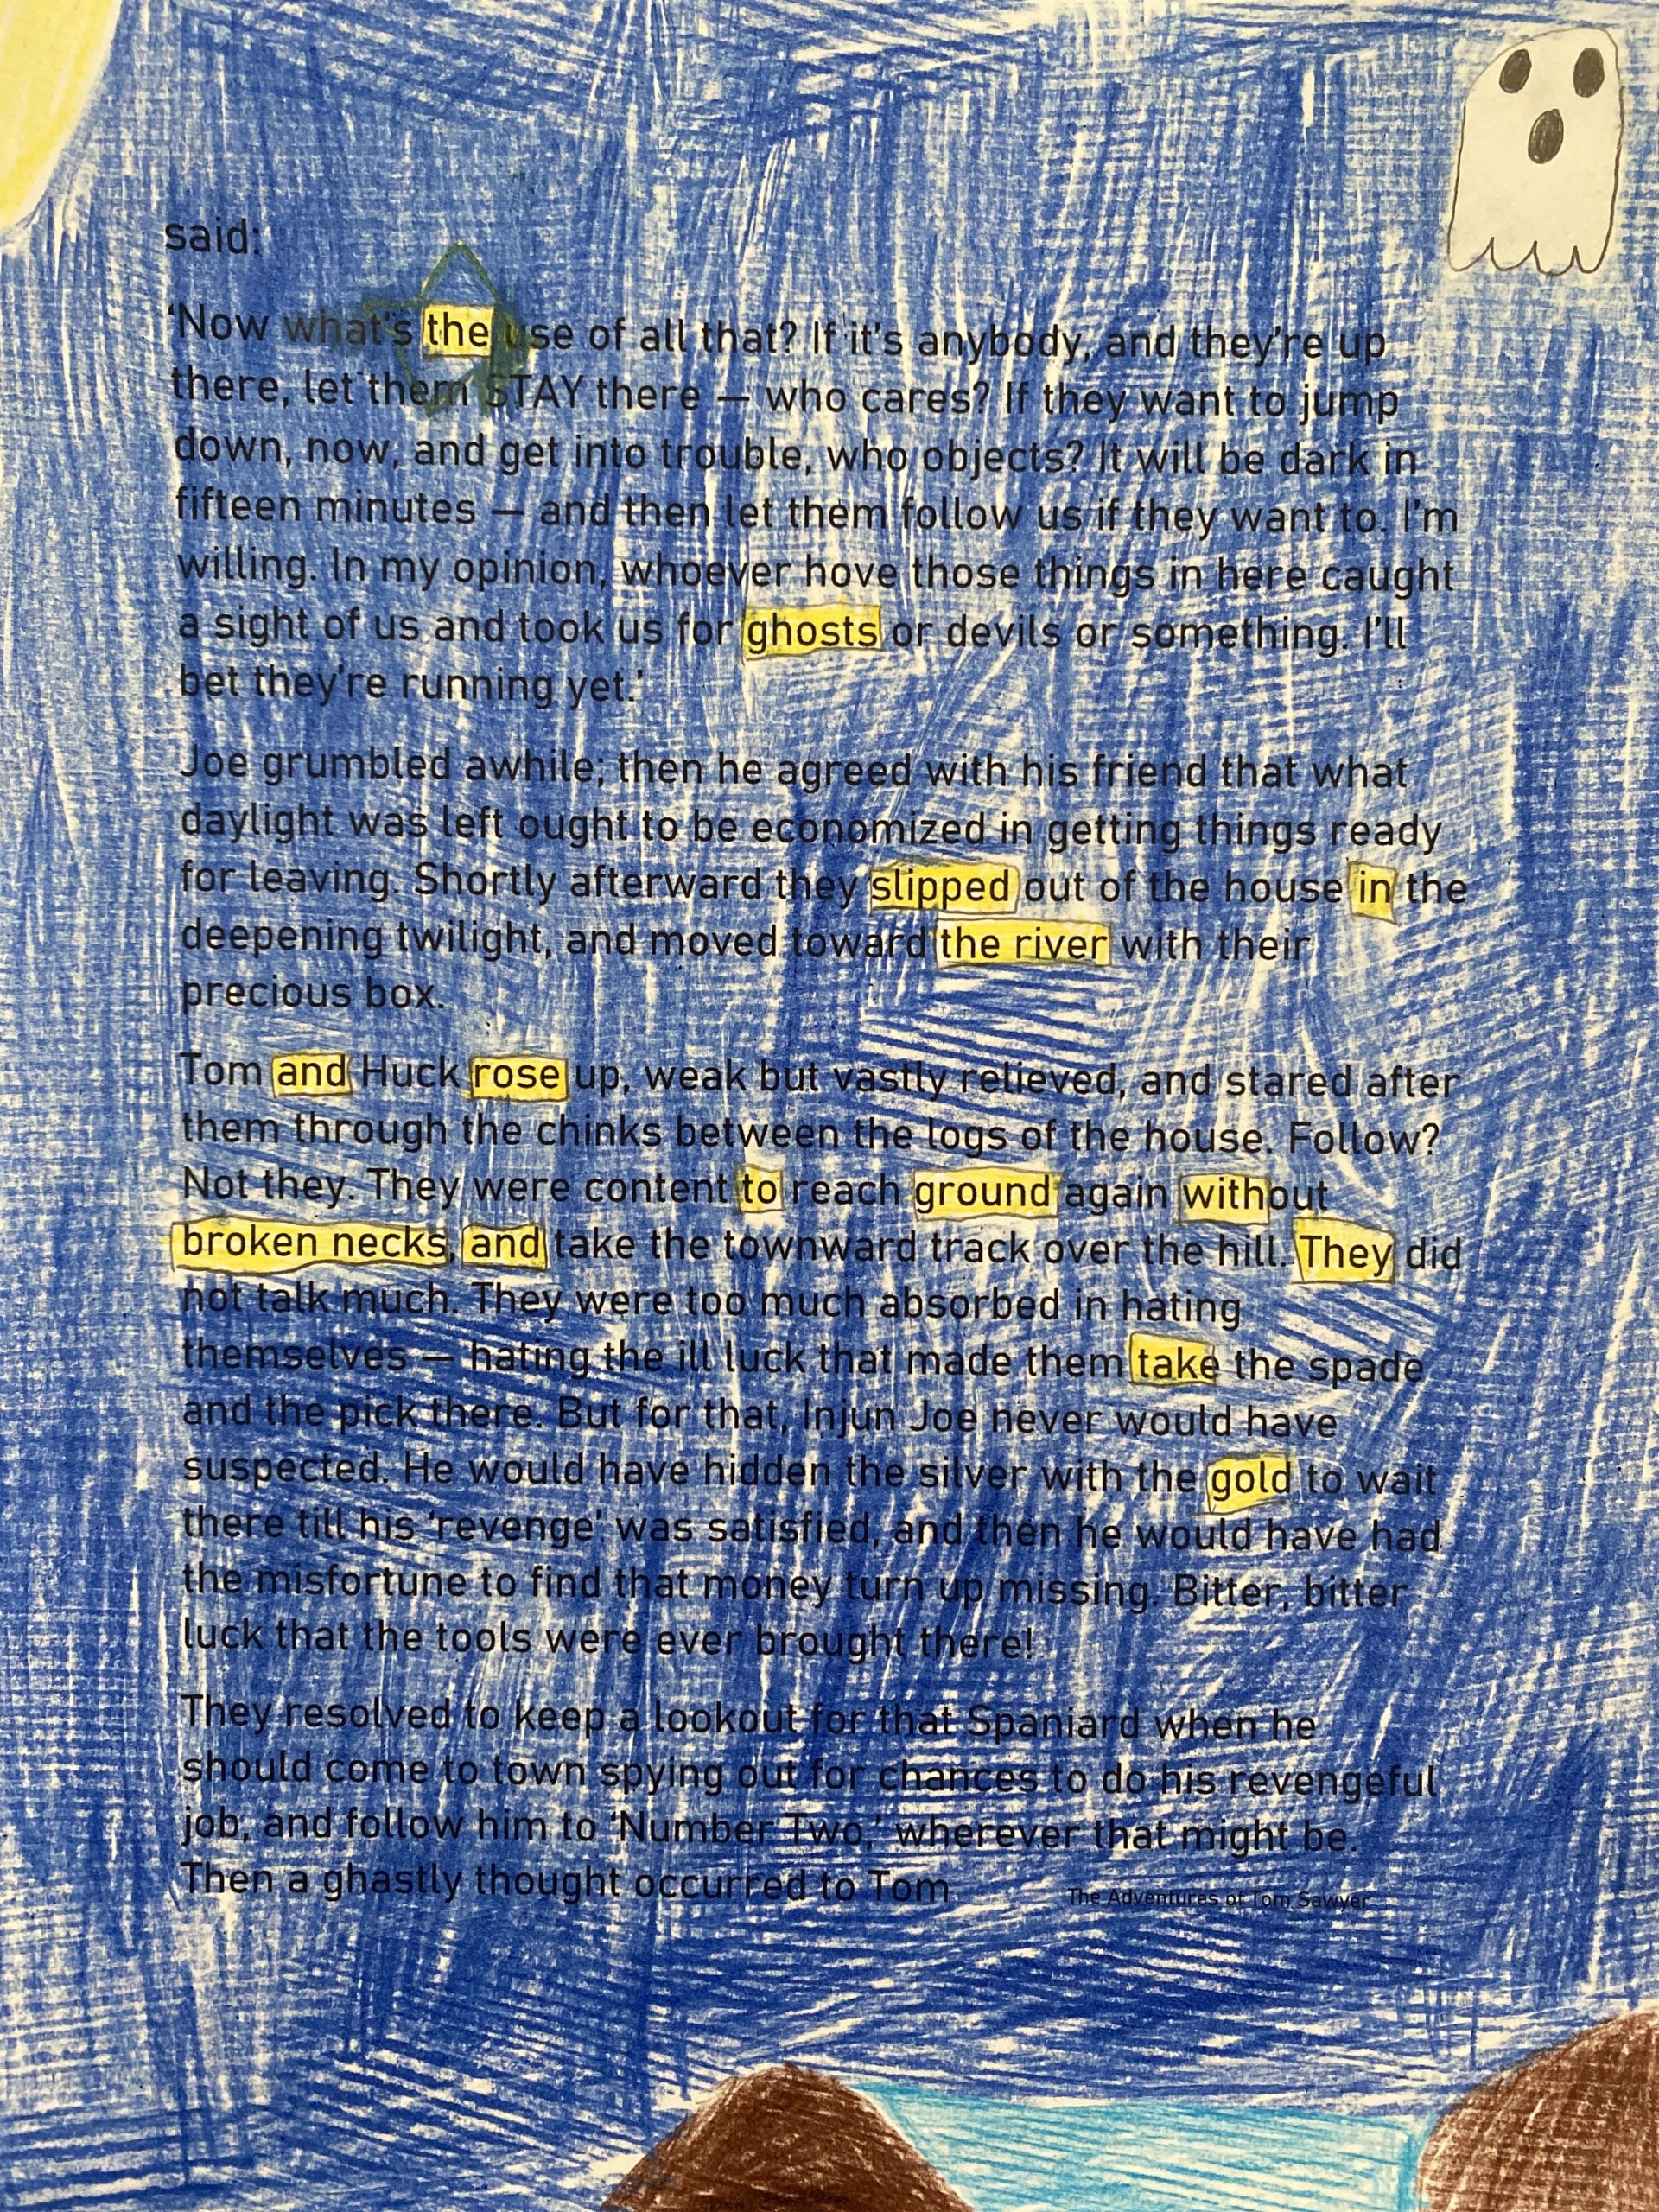 said:
‘Now what's the use of all that? If it's anybody, and they're up
there, let them STAY there — who cares? If they want to jump
down, now, and get into trouble, who objects? It will be dark in
fifteen minutes — and then let them follow us if they want to. I'm
willing. In my opinion, whoever hove those things in here caught
a sight of us and took us for ghosts or devils or something. I'll
bet they're running yet.’
Joe grumbled awhile; then he agreed with his friend that what
daylight was left ought to be economized in getting things ready
for leaving. Shortly afterward they slipped out of the house in the
deepening twilight, and moved toward the river with their
precious box.
Tom and Huck rose up, weak but vastly relieved, and stared after
them through the chinks between the logs of the house. Follow?
Not they. They were content to reach ground again without
broken necks, and take the townward track over the hill. They did
not talk much. They were too much absorbed in hating
themselves — hating the ill luck that made them take the spade
and the pick there. But for that, Injun Joe never would have
suspected. He would have hidden the silver with the gold to wait
there till his ‘revenge’ was satisfied, and then he would have had
the misfortune to find that money turn up missing. Bitter, bitter
luck that the tools were ever brought there!
They resolved to keep a lookout for that Spaniard when he
should come to town spying out for chances to do his revengeful
job, and follow him to ‘Number Two,’ wherever that might be.
Then a ghastly thought occurred to Tom
The Adventures of Tom Sawyer